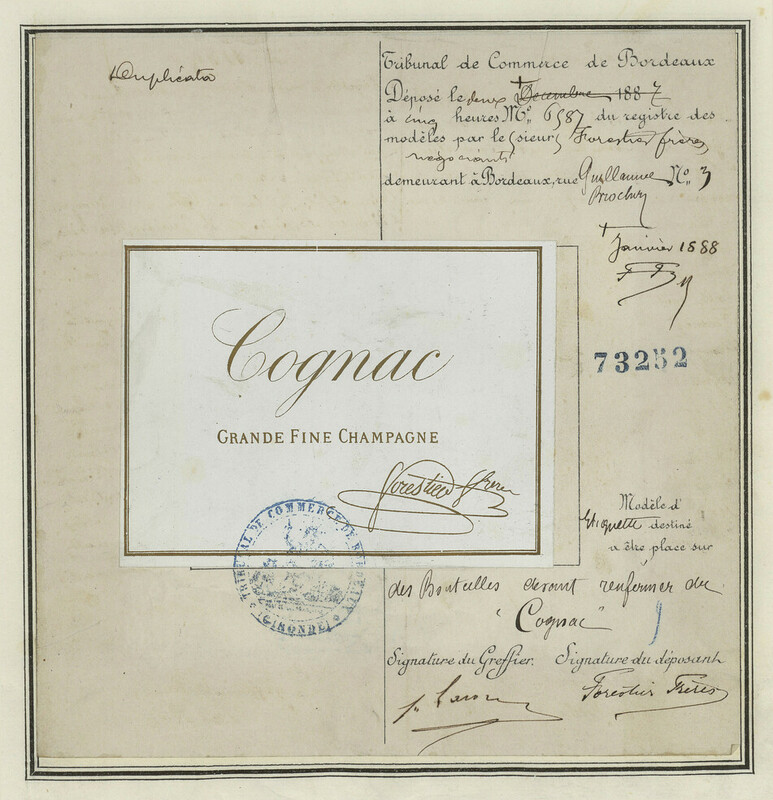 Duplicata
Tribunal de Commerce de Bordeaux
Déposé le deux Decembre 1887
à cinq heures No. 6587 du registre des
modèles par le sieurs Forestier frères
négociants
demeurant à Bordeaux, rue Guillaume No. 3
Brochon
Janvier 1888
73252
Cognac
GRANDE FINE CHAMPAGNE
Forestier frères
TRIBUNAL DE COMMERCE DE BORDEAUX
(GIRONDE)
Modèle d'
Etiquette destiné
a être place sur
des Bouteilles devant renfermer du
"Cognac"
Signature du Greffier. Signature du déposant
Forestier Frères